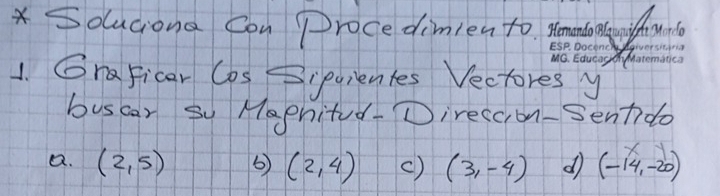 * Soluciona con Procedimiento.
Hernando Mordo
ESP. Docencia Universitaria
MG. Educación Matemática
1. Graficar los Siguientes Vectores y
buscar su Magnitud - Dirección - Sentido
a. (2,5) b) (2,4) c) (3,-4) d) (-14,-20)